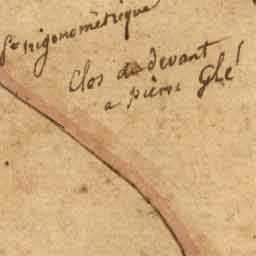 trigonométrique
Clos de devant
a pierre Glé